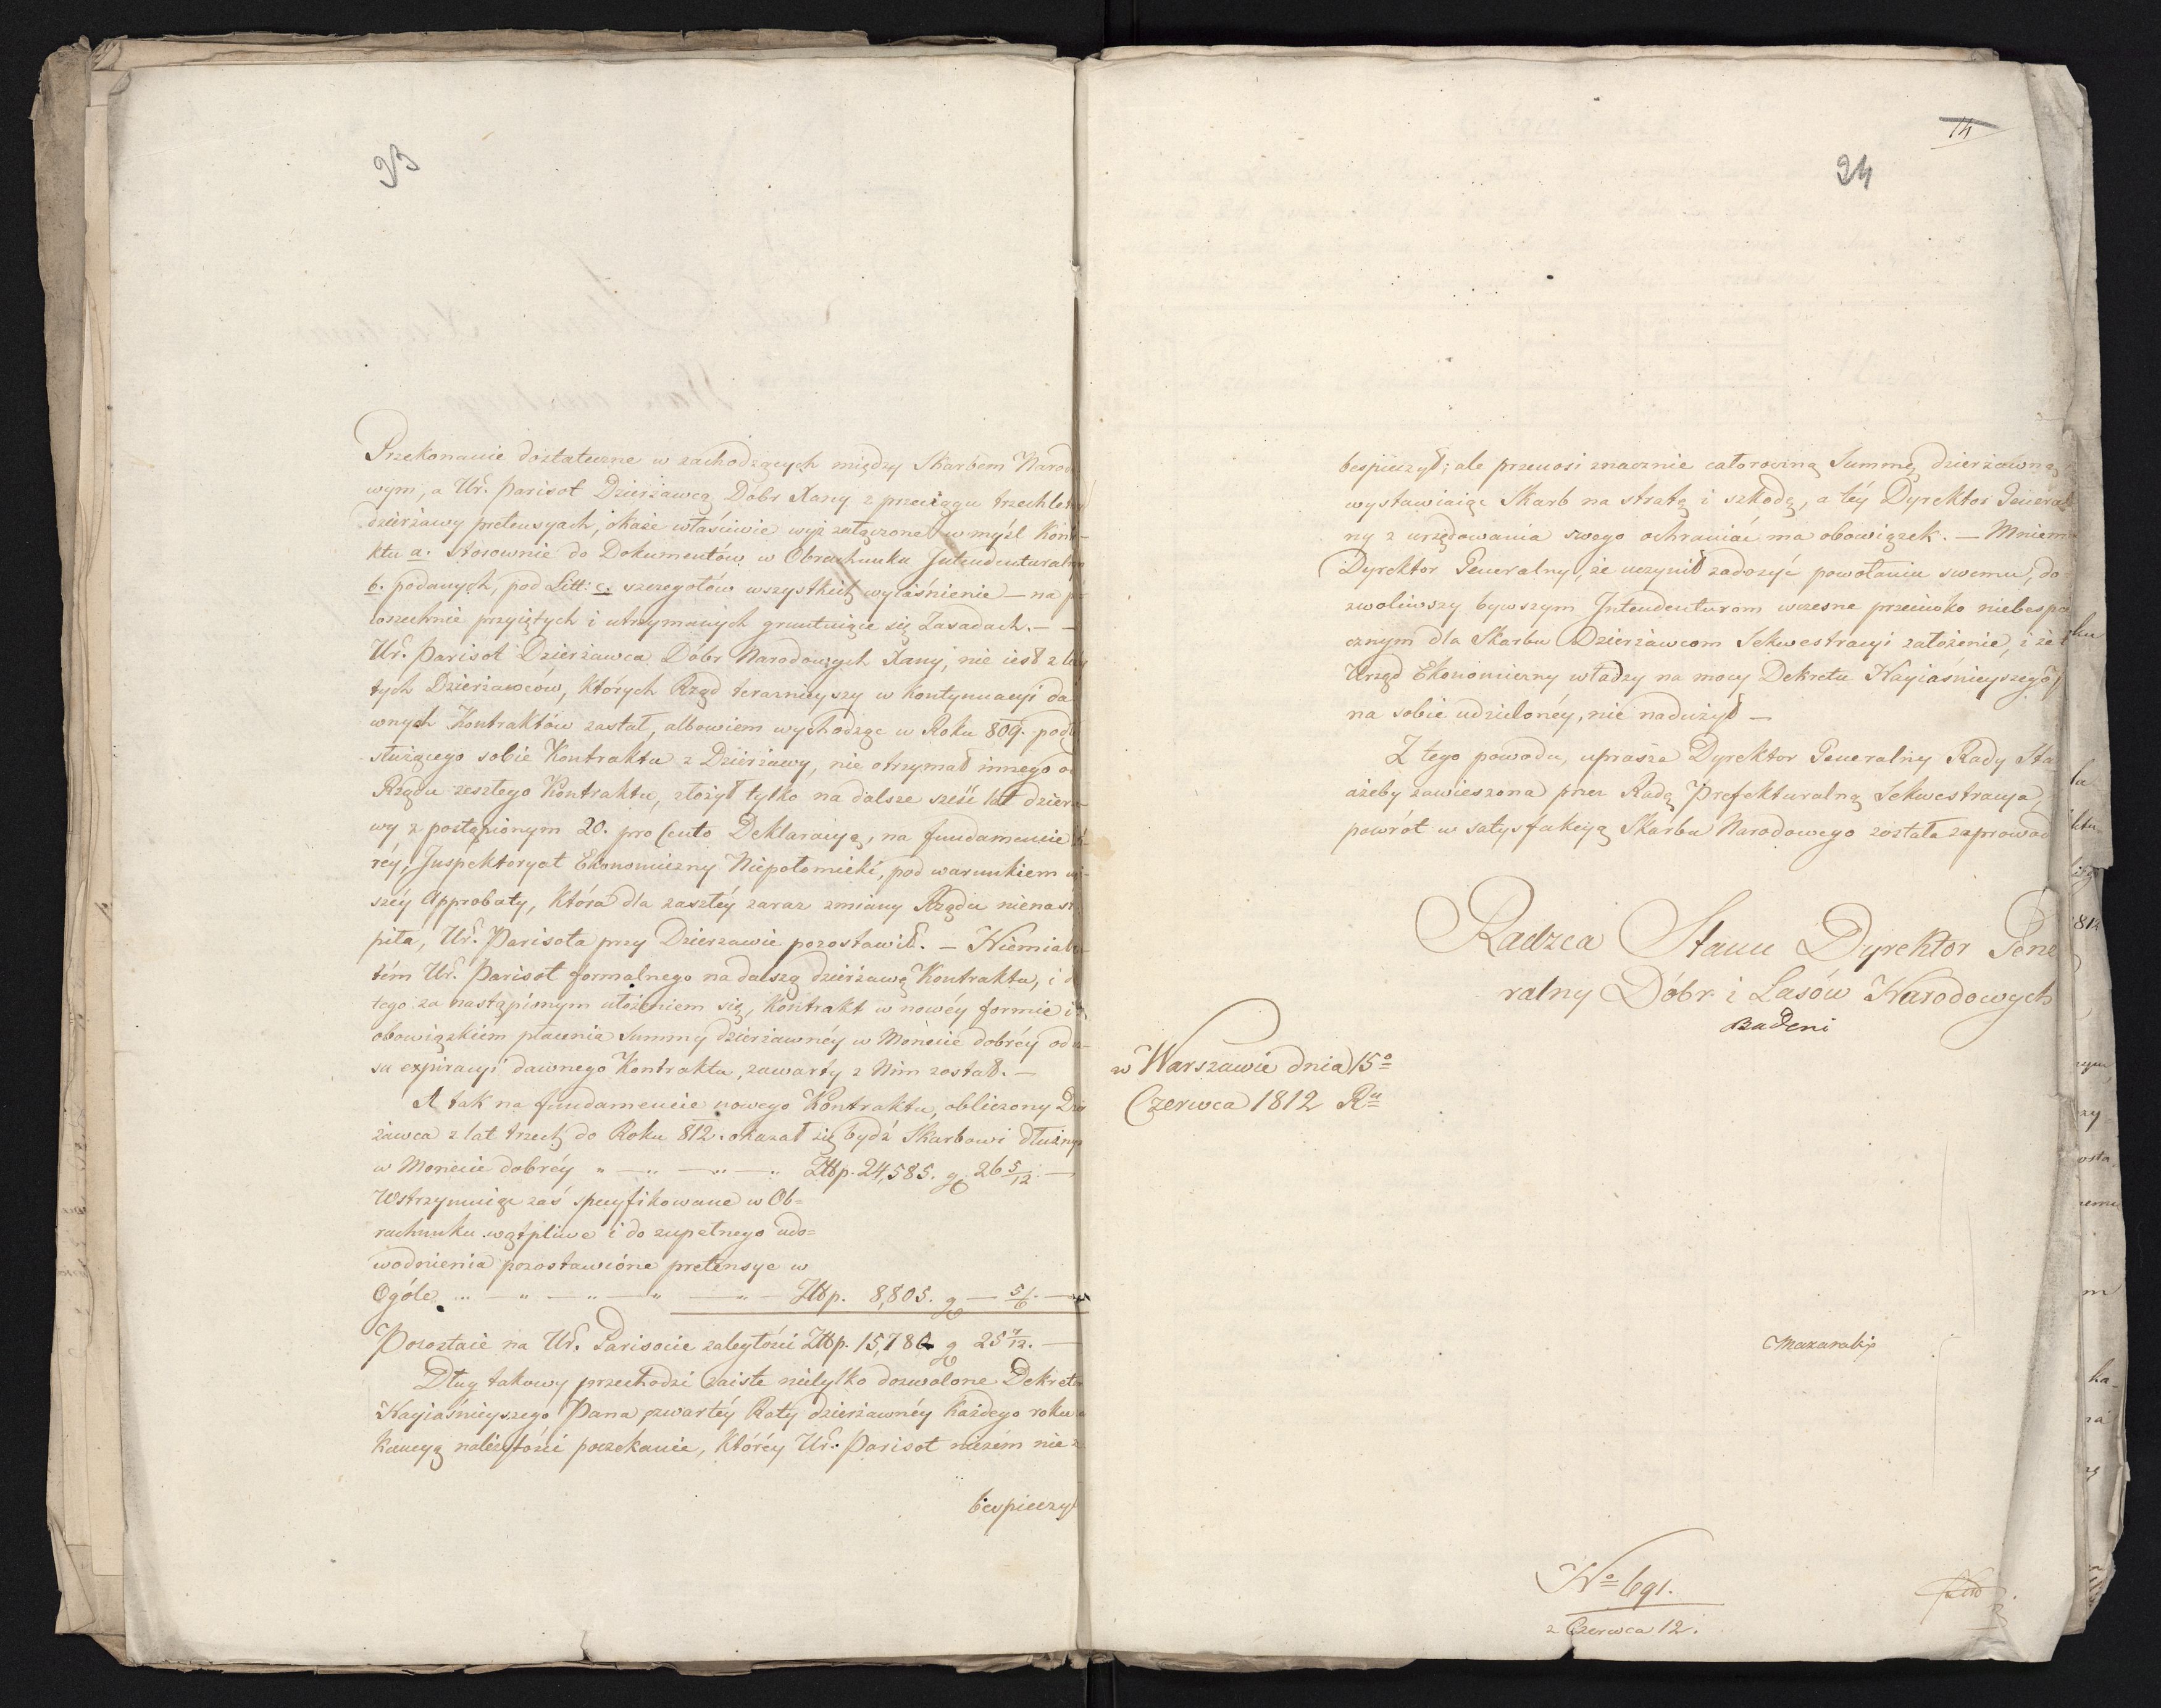 93
Przekonanie dostateczne w zachodzących między Skarbem Narodo
wym, a Ur. Parisot Dzierżawcą Dóbr Kany z przeciągu trzechletn
dzierżawy pretensyach, okaże właściwie wyż załączone w myśl Kontr
ktu a. stosownie do Dokumentów w Obrachunku Intendenturaln
b. podanych, pod Litt: c. szczegołów wszystkich wyiaśnienie — na p
wszechnie przyiętych i utrzymanych gruntuiące się Zasadach. —
Ur. Parisot Dzierżawca Dóbr Narodowych Kany, nie iest z
tych Dzierżawców, których Rząd teraznieyszy w kontynuacyi da
wnych Kontraktów zastał, albowiem wychodząc w Roku 809. podł
służącego sobie Kontraktu z Dzierżawy, nie otrzymał innego o
Rządu zeszłego Kontraktu, złożył tylko na dalsze sześć lat dzierża
wy z postąpionym 20. pro Cento Deklaracyą, na fundamencie
réy, Inspektoryat Ekonomiczny Niepołomicki, pod warunkiem
széy Approbaty, która dla zaszłéy zaraz zmiany Rządu nienast
piła, Ur. Parisota przy Dzierzawie pozostawił. — Niemiał
tém Ur. Parisot formalnego na dalszą dzierżawę Kontraktu, i d
tego za nastąpionym ułożeniem się, Kontrakt w nowéy formie i
obowiązkiem płacenia Summy dzierżawnéy w Monecie dobréy od
su expiracyi dawnego Kontraktu, zawarty z Nim został. —
A tak na fundamencie nowego Kontraktu, obliczony Dzier
żawca z lat trzech do Roku 812. okazał się bydź Skarbowi dłużny
w Monecie dobréy " — " — " — " Złłp. 24,585. gr 26 5/12. —
Wstrzymuiąc zaś specyfikowane w Ob=
rachunku wątpliwe i do zupełnego udo=
wodnienia pozostawione pretensye w
Ogóle " — " — " — " — " — Złłp. 8,805. gr — 5/6. —
Pozostaie na Ur. Parisocie zaległości Złłp. 15,780 gr 25 7/12. —
Dług takowy przechodzi zaiste nietylko dozwolone Dekretem
Nayiaśnieyszego Pana czwartéy Raty dzierżawnéy każdego roku
kaucyą należytości poczekanie, któréy Ur. Parisot niczém nie z
bespieczył
14
94
bespieczył; ale przenosi znacznie całoroczną Summę dzierżawną
wystawiaiąc Skarb na stratę i szkodę, a téy Dyrektor General
ny z urzędowania swego ochraniać ma obowiązek. — Mniem
Dyrektor Generalny, że uczynił zadosyć powołaniu swemu, do=
zwoliwszy bywszym Intendenturom wczesne przeciwko niebespie
cznym dla Skarbu Dzierżawcom Sekwestracyi założenie, i że t
Urząd Ekonomiczny władzy na mocy Dekretu Nayiaśnieyszego
na sobie udzielonéy, nie nadużył —
Z tego powodu, uprasza Dyrektor Generalny Rady Sta
ażeby zawieszona przez Radę Prefekturalną Sekwestracya,
powrót w satysfakcyą Skarbu Narodowego została zaprowad
Radzca Stanu Dyrektor Gene
ralny Dóbr i Lasów Narodowych
Badeni
w Warszawie dnia 15º
Czerwca 1812 Ru
Mazaraki
Nº 691.
z Czerwca 12.